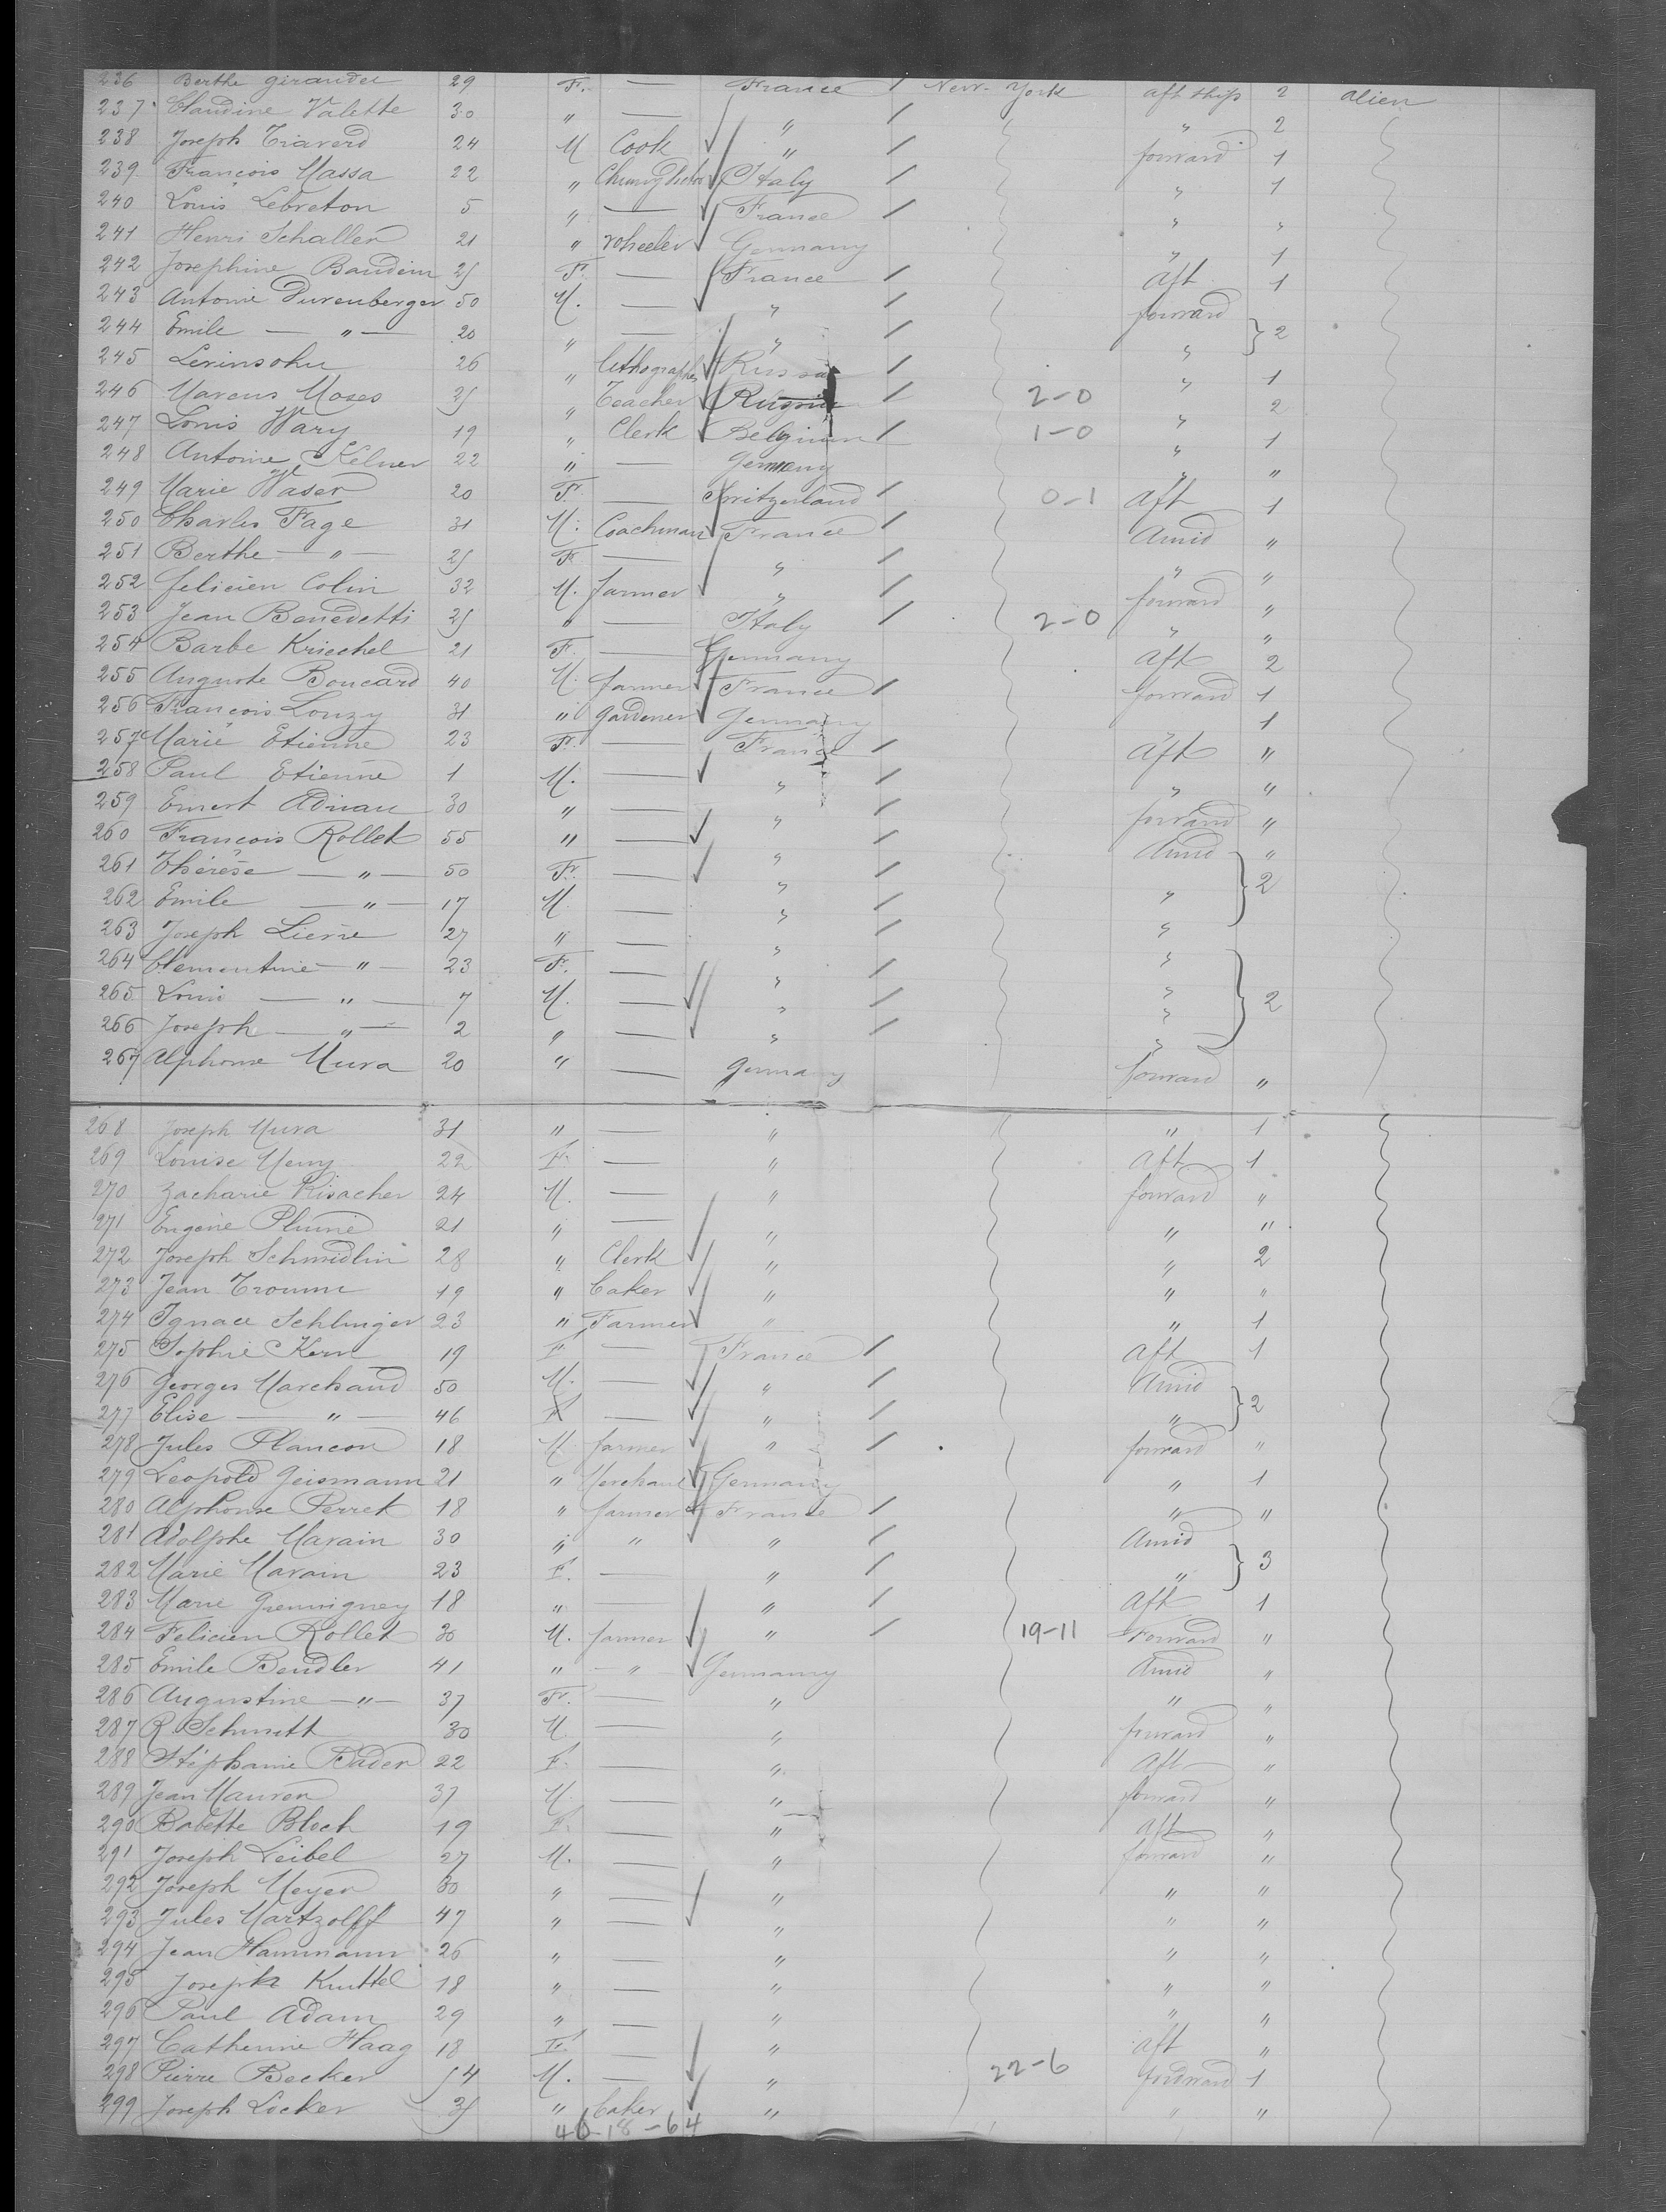 236 Berthe Giraudel 29 F. — France / New-York aft ship 2 alien
237 Claudine Valette 30 " — " / " 2
238 Joseph Triaverd 24 M Cook " / forward 1
239 François Massa 22 " Italy / " 1
240 Louis Lebreton 5 " — France / " "
241 Henri Schaller 21 " Germany " 1
242 Josephine Baudin 25 F. — France / Aft 1
243 Antoine Durenberger 50 M. — " / forward
244 Emile — " — 20 " — " / " } 2
245 Levinsohn 26 " lithographer Russia / " 1
246 Marcus Moses 25 " Teacher Russia / 2-0 " 2
247 Louis Wary 19 " Clerk Belgium / 1-0 " 1
248 Antoine Kelner 22 " — Germany " "
249 Marie Waser 20 F. — Switzerland / 0-1 Aft 1
250 Charles Fage 31 M. Coachman France / Amid "
251 Berthe — " — 25 F. — " / " "
252 Felicien Colin 32 M. farmer " / forward "
253 Jean Benedetti 25 " — Italy / 2-0 " "
254 Barbe Kriechel 21 F. — Germany Aft 2
255 Auguste Boucard 40 M. farmer France / forward 1
256 François Louzy 31 " gardener Germany 1
257 Marie Etienne 23 F. — France / Aft "
258 Paul Etienne 1 M. — " / " "
259 Ernest Adrian 30 " — " / forward "
260 François Rollet 55 " — " / Amid "
261 Thérèse — " — 50 F. — " / } 2
262 Emile — " — 17 M — " / "
263 Joseph Lierre 27 " — " / "
264 Clementine — " — 23 F. — " / "
265 Louis — " — 7 M. — " / " } 2
266 Joseph — " — 2 " — " / "
267 Alphonse Mura 20 " — Germany forward "
268 Joseph Mura 31 " — " " 1
269 Louise Meny 22 F. — " Aft 1
270 Zacharie Risacher 24 M. — " forward "
271 Eugene Plumé 21 " — " " "
272 Joseph Schmidlin 28 " Clerk " " 2
273 Jean Tromm 19 " baker " " "
274 Ignace Schlinger 23 " Farmer " " 1
275 Sophie Kern 19 F — France / Aft 1
276 Georges Marchand 50 M. — " / Amid
277 Elise — " — 46 F — " / " } 2
278 Jules Plancon 18 M. farmer " / forward "
279 Leopold Geismann 21 " Merchant Germany " 1
280 Alphonse Perret 18 " farmer France / " "
281 Adolphe Marain 30 " " " / Amid
282 Marie Marain 23 F. — " / " } 3
283 Marie 18 " — " / Aft 1
284 Felicien Rollet 30 M. farmer " / 19-11 Forward "
285 Emile Bendler 41 " — " Germany Amid "
286 Augustine — " — 37 F. — " " "
287 R. Schmitt 30 M — " forward "
288 Stéphanie Bader 22 F. — " Aft "
289 Jean Mauren 37 M. — " forward "
290 Babette Bloch 19 F. — " aft "
291 Joseph Leibel 27 M. — " forward "
292 Joseph Meyer 30 " — " " "
293 Jules Martzolff 47 " — " " "
294 Jean Hammann 26 " — " " "
295 Joseph Knittel 18 " — " " "
296 Paul Adam 29 " — " " "
297 Catherine Haag 18 F. — " aft "
298 Pierre Becker 54 M. — " 22-6 forward 1
299 Joseph Locker 35 " baker " " "
40-18-64